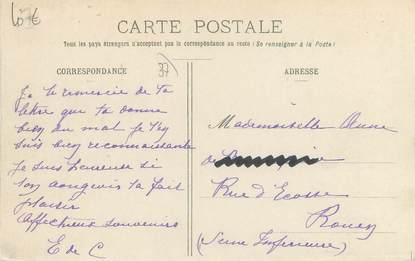 10€
CARTE POSTALE
Tous les pays étrangers n'acceptent pas la correspondance au recto (Se renseigner à la Poste)
CORRESPONDANCE
37
ADRESSE
Je te remercie de ta
lettre que ta donne
bien du mal je t'y
suis bien reconnaissante
je suis heureuse si
ton t'a fait
plaisir
Affectueux souvenirs
E de C
Mademoiselle Anne
de
Rue d'Ecosse
Rouen
(Seine Inférieure)